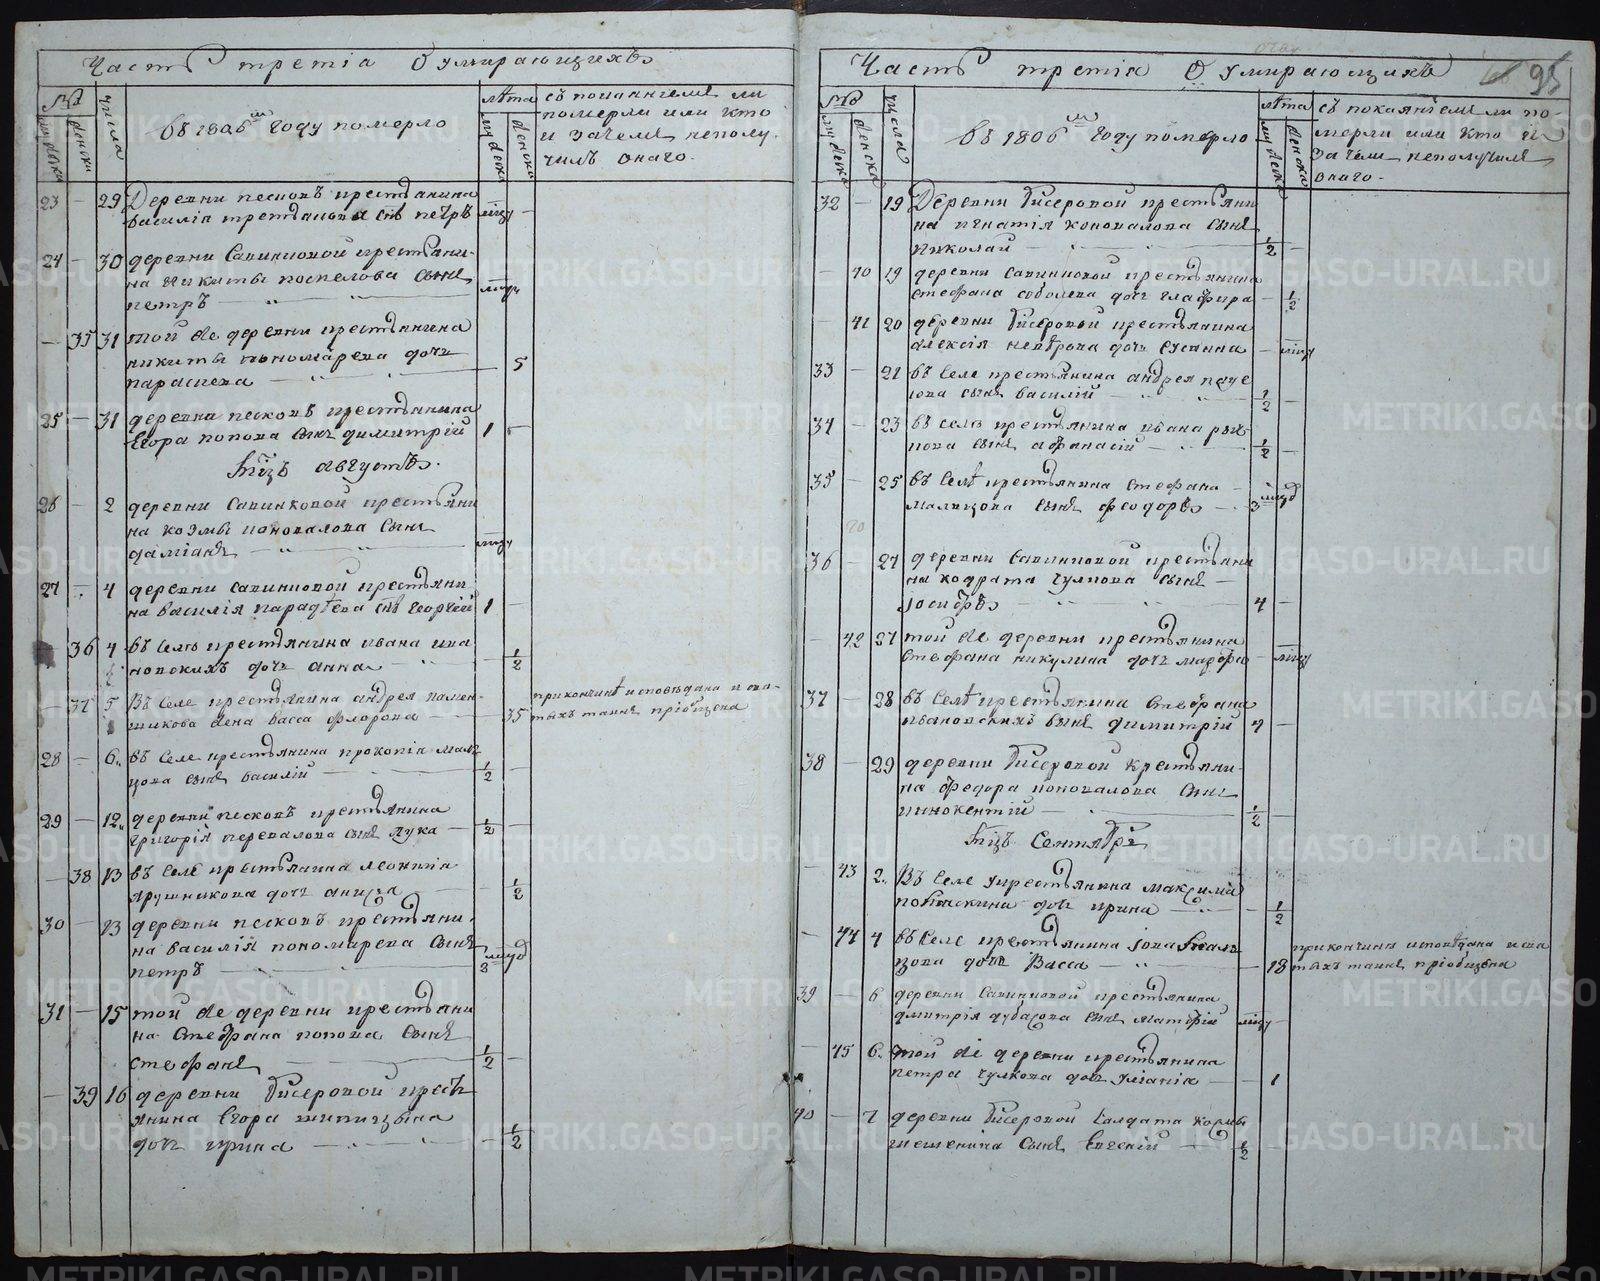 Часть третіа О умирающихъ
№
мужеска
женска
числа
въ 1806м году померло
лѣта
мужеска
женска
съ покаяніемъ ли
померли или кто
и зачемъ неполу
чилъ онаго.
23 — 29 Деревни песковъ крестьянина
василіа третьякова снъ петръ мцу —
24 — 30 деревни Савинковой крестьяни-
на Никиты поспелова сынъ
петръ мцъ
— 35 31 той же деревни крестьянина
никиты пономарева дочь
параскева — 5
25 — 31 деревни песковъ крестьянина
Егора попова сынъ димитрій 1 —
Мцъ августъ.
26 — 2 деревни Савинковой крестьяни
на козмы коновалова сынъ
даміанъ мцу
27 — 4 деревни савинковой крестьяни
на василія снъ Георгій 1 —
36 4 въ селѣ крестьянина ивана ива
новскихъ дочь анна — 1/2
— 37 5 Въ селе крестьянина андрея камен-
щикова жена васса флорова — 35 прикончинѣ исповѣдана и свя-
тыхъ таинъ пріобщена
28 — 6 въ селе крестьянина прокопіа маль
цова сынъ василій 1/2 —
29 — 12 деревни песковъ крестьянина
григорія перевалова сынъ лука 1/2 —
— 38 13 въ селе крестьянина леонтіа
ярушникова дочь аниса 1/2
30 — 13 деревни песковъ крестьяни-
на василія пономарева сынъ
петръ 8 мцъ —
31 — 15 той же деревни крестьяни
на Стефана попова сынъ
стефанъ 1/2 —
— 39 16 деревни бисеровой кресть
янина Егора шипицына
дочь ирина — 1/2
Часть третіа О умирающихъ
95
№
мужеска
женска
числа
въ 1806м году померло
лѣта
мужеска
женска
съ покаяніемъ ли по-
мерли или кто и
зачемъ неполучилъ
онаго.
32 — 19 Деревни бисеровой крестьяни
на игнатія коновалова сынъ
николай 1/2 —
— 40 19 деревни савинковой крестьянина
стефана соболева дочь глафира — 1/2
— 41 20 деревни бисеровой крестьянина
алексія дочь сусанна — мцу
33 — 21 въ селе крестьянина андрея
сынъ василій 1/2 —
34 — 23 въ селѣ крестьянина ивана
сынъ афанасій 1/2 —
35 — 25 въ селѣ крестьянина стефана
мальцова сынъ феодоръ 3 мцъ
36 — 27 деревни савинковой крестьяни
на кодрата чулкова сынъ
іосифъ 4 —
— 42 27 той же деревни крестьянина
стефана никулина дочь марфа — мцу
37 — 28 въ селѣ крестьянина стефана
ивановскихъ сынъ димитрій 4 —
38 — 29 деревни бисеровой крестьяни-
на федора коновалова сынъ
иннокентій 1/2 —
Мцъ Сентябрь
— 43 2 Въ селе укрестьянина максима
поташкина дочь ирина — 1/2
— 44 4 въ селе крестьянина іова маль
цова дочь васса — 13 прикончинѣ исповѣдана и свя
тыхъ таинъ пріобщена
39 — 6 деревни савинковой крестьянина
дмитрія дубасова сынъ матфій мцу —
— 45 6 той же деревни крестьянина
петра чулкова дочь уліаніа — 1
40 — 7 деревни бисеровой салдата козмы
шешенина сынъ Евгеній 1/2 —
METRIKI.GASO-URAL.RU